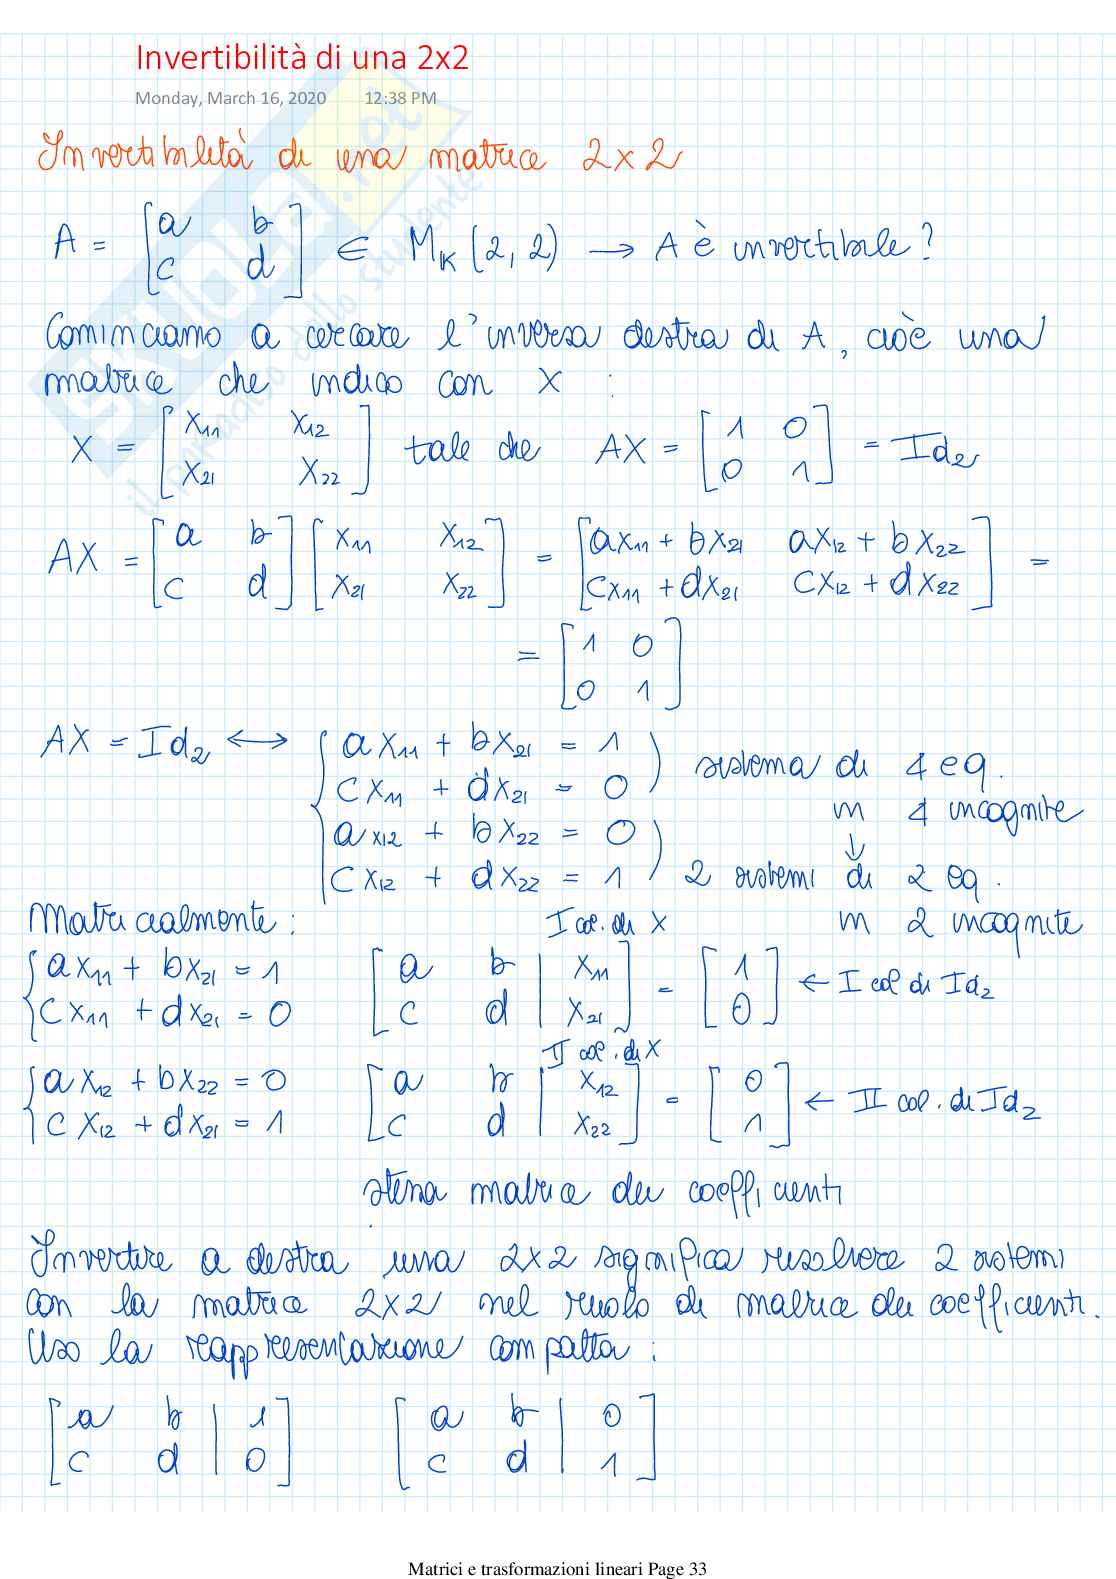 Invertibilità di una 2x2
Monday, March 16, 2020 12:38 PM
Invertibilità di una matrice 2x2
A = [a b; c d] ∈ M_IK (2, 2) → A è invertibile?
Cominciamo a cercare l'inversa destra di A, cioè una
matrice che indico con X :
X = [x11 x12; x21 x22] tale che AX = [1 0; 0 1] = Id2
AX = [a b; c d] [x11 x12; x21 x22] = [ax11 + bx21 ax12 + bx22; cx11 + dx21 cx12 + dx22] =
= [1 0; 0 1]
AX = Id2 ⟷ { ax11 + bx21 = 1 ) sistema di 4 eq.
cx11 + dx21 = 0 in 4 incognite
ax12 + bx22 = 0 ) ↓
cx12 + dx22 = 1 2 sistemi di 2 eq.
Matricialmente: I col. di X in 2 incognite
{ ax11 + bx21 = 1; cx11 + dx21 = 0 [a b | x11; c d | x21] = [1; 0] ← I col di Id2
II col. di X
{ ax12 + bx22 = 0; cx12 + dx21 = 1 [a b | x12; c d | x22] = [0; 1] ← II col. di Id2
stessa matrice dei coefficienti
Invertire a destra una 2x2 significa risolvere 2 sistemi
con la matrice 2x2 nel ruolo di matrice dei coefficienti.
Uso la reappresentazione compatta:
[a b | 1; c d | 0] [a b | 0; c d | 1]
Matrici e trasformazioni lineari Page 33
SKUOLA.net
il paradiso dello studente